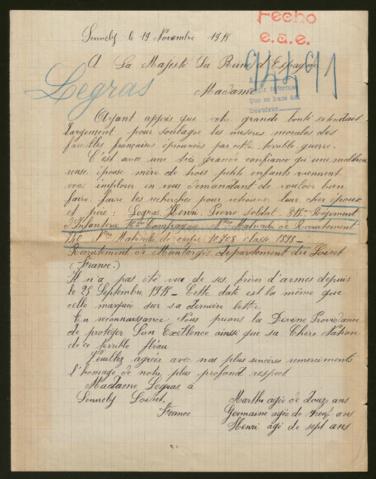 Fecho
e.a.e.
94491
Legras
Sennely le 19 Novembre 1915
A Sa Majesté La Reine d'Espagne
Madame
Ayant appris que votre grande bonté s'étendait
largement pour soulager les misères morales des
familles françaises éprouvées par cette terrible guerre.
C'est avec une très grande confiance qu'une malheureuse
épouse mère de trois petits enfants viennent
vous implorer en vous demandant de vouloir bien
faire faire les recherches pour retrouver leur cher époux
et père: Legras Henri Pierre soldat Régiment
d'Infanterie Compagnie Matricule de Recrutement
Matricule de corps classe
Recrutement de Montargis département du Loiret
(France.)
Il n'a pas été vu de ses frères d'armes depuis
le 25 Septembre 1915 - Cette date est la même que
celle marquée sur sa dernière lettre.
En reconnaissance nous prions la Divine Providence
de protéger Son Excellence ainsi que sa Chère Nation
de ce terrible fléau.
Veuillez agréer avec nos plus sincères remerciements
l'hommage de notre plus profond respect
Madame Legras à
Sennely Loiret.
France
Marthe agée de douze ans
Germaine agée de neuf ans
Henri agé de sept ans